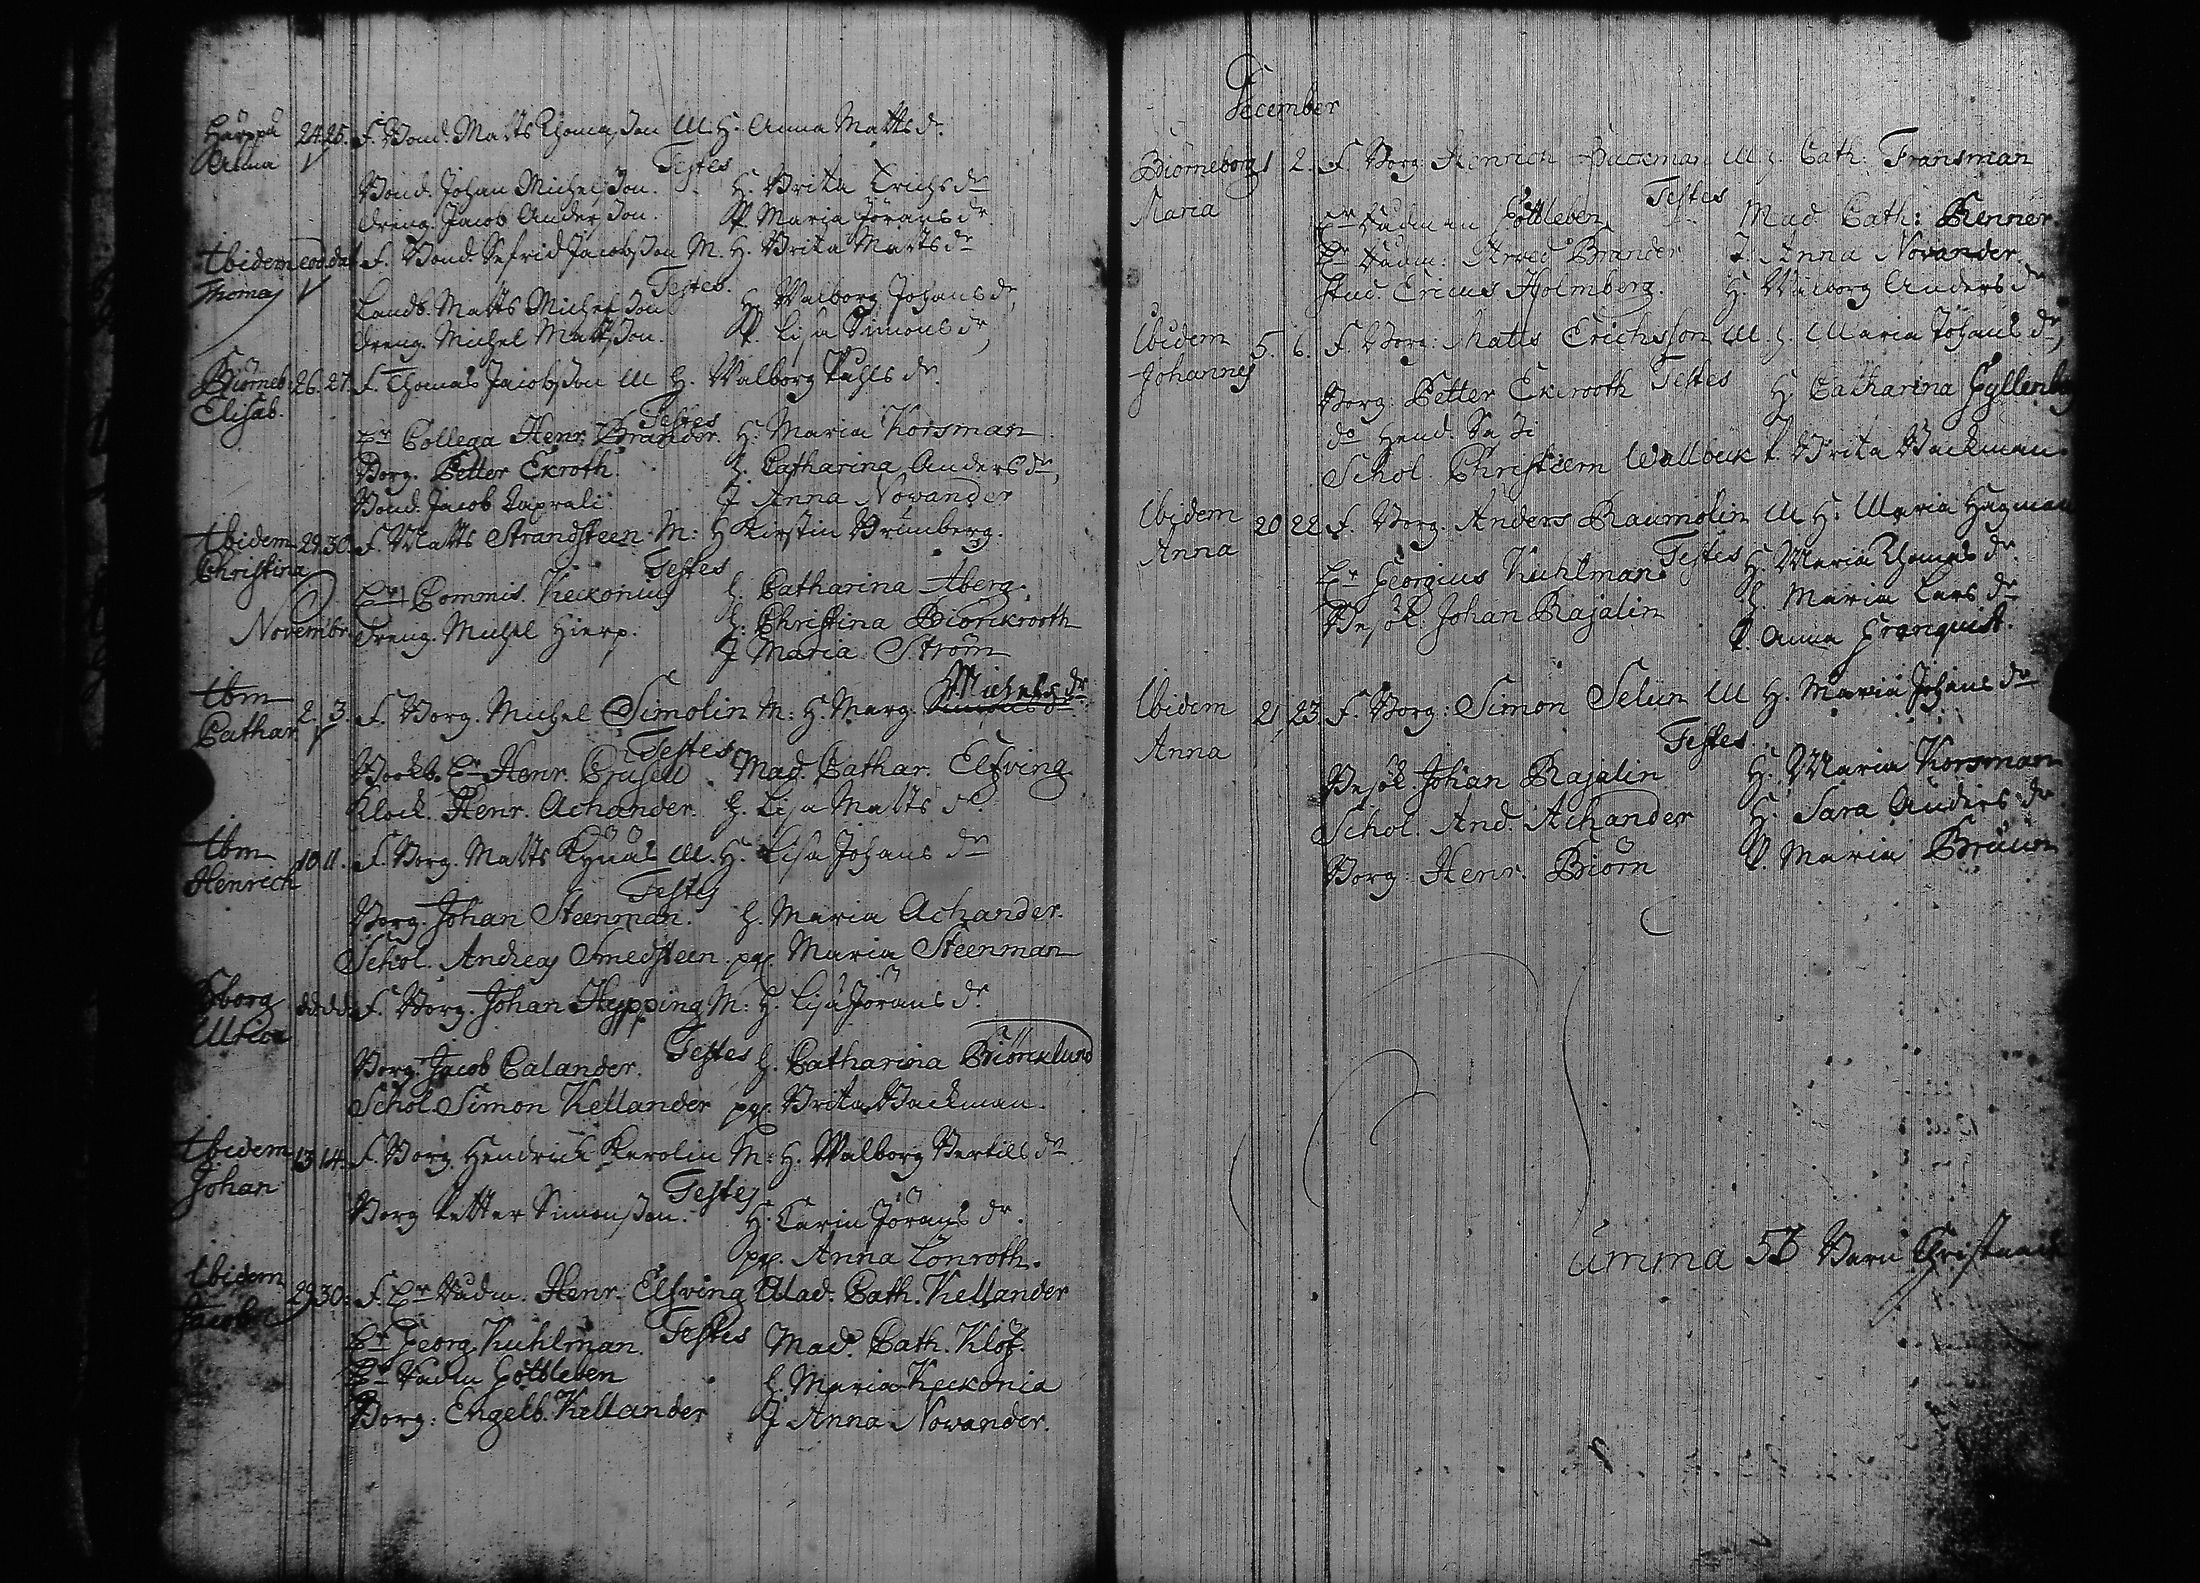 Anna 24. 25. F. Bond. Matts Thomasson M. H. Anna Matts dr
Testes
Bond. Johan Michelsson. H. Brita Erichs dr
Dreng. Jacob Andersson. P. Maria Jörans dr
Ibidem eod. dat. F. Bond. Sefrid Jacobsson M. H. Brita Matts dr
Thomas
Testes.
Landb. Matts Michelsson H. Walborg Johans dr
Dreng. Michel Mattsson. P. Lisa Simons dr
Biörneb. 26. 27. F. Thomas Jacobsson M H. Walborg Påhls dr.
Elisab.
Testes
Hr Collega Henr. Brander. H. Maria Korsman
Borg. Petter Ekroth. H. Catharina Anders dr
Bond. Jacob J. Anna Novander
Ibidem 29. 30. F. Matts Strandsteen M: H Kirstin Brunberg.
Christina
Testes
Hr Commis. Keckonius H. Catharina Åberg.
Novembr.
Dreng. Michel Hierp. H. Christina Biörckrooth
J Maria Ström
Ibm 2. 3. F. Borg. Michel Simolin M: H. Marg. Michels dr
Cathar
Testes
Bookb. Hr Henr. Crusell Mad. Cathar. Elfving
Klock. Henr. Achander. H. Lisa Matts dr
Ibm 10 11. F. Borg. Matts M. H. Lisa Johans dr
Henrich
Testes
Borg. Johan Steenman. H. Maria Achander.
Schol. Andreas Smedsteen. pg. Maria Steenman
dd. dd. F. Borg. Johan Hepping M: H. Lisa Jörans dr
Ulrica
Testes
Borg. Jacob Calander. H. Catharina Biörcklund
Schol. Simon Kellander pg. Brita Backman.
Ibidem 13. 14. F. Borg. Hendrich Kerolin M: H. Walborg Bertils dr
Johan
Testes
Borg Petter Simonsson. H. Carin Jörans dr.
pg. Anna Lönroth.
Ibidem 29. 30. F. Hr Rådm. Henr. Elfving Mad. Cath. Kellander
Jacob
Testes
Hr Georg Kuhlman. Mad. Cath. Klöf.
Hr Rådm Gottleben H. Maria Keckonia
Borg: Engelb. Kellander J Anna Novander.
December
Biörneborg 1 2. F. Borg. Henrich Backman M H. Cath: Fransman
Maria
Testes
Hr Rådman Gottleben Mad Cath: Renner
Hr Rådm: Arved Brander J. Anna Novander
Stud. Ericus Holmberg. H. Walborg Anders dr
Ibidem 5. 6. F. Borg: Matts Erichsson M H. Maria Johans dr
Johannes
Testes
Borg. Petter Ekrooth H. Catharina
do Hend.
Schol. Christiern Wallbeck P. Brita Backman.
Ibidem 20 22 F. Borg. Anders Raumolin M H. Maria Hagman
Anna
Testes
Hr Georgius Kuhlman H. Maria Thomas dr
Besök. Johan Rajalin H. Maria Lars dr
P. Anna Granquist.
Ibidem 21 23. F. Borg: Simon Selin M H. Maria Johans dr
Anna
Testes
Besök. Johan Rajalin H. Maria Korsman
Schol. And. Achander H. Sara Anders dr
Borg: Henr. Biörn P Maria Bruun
umma Barn Christnade